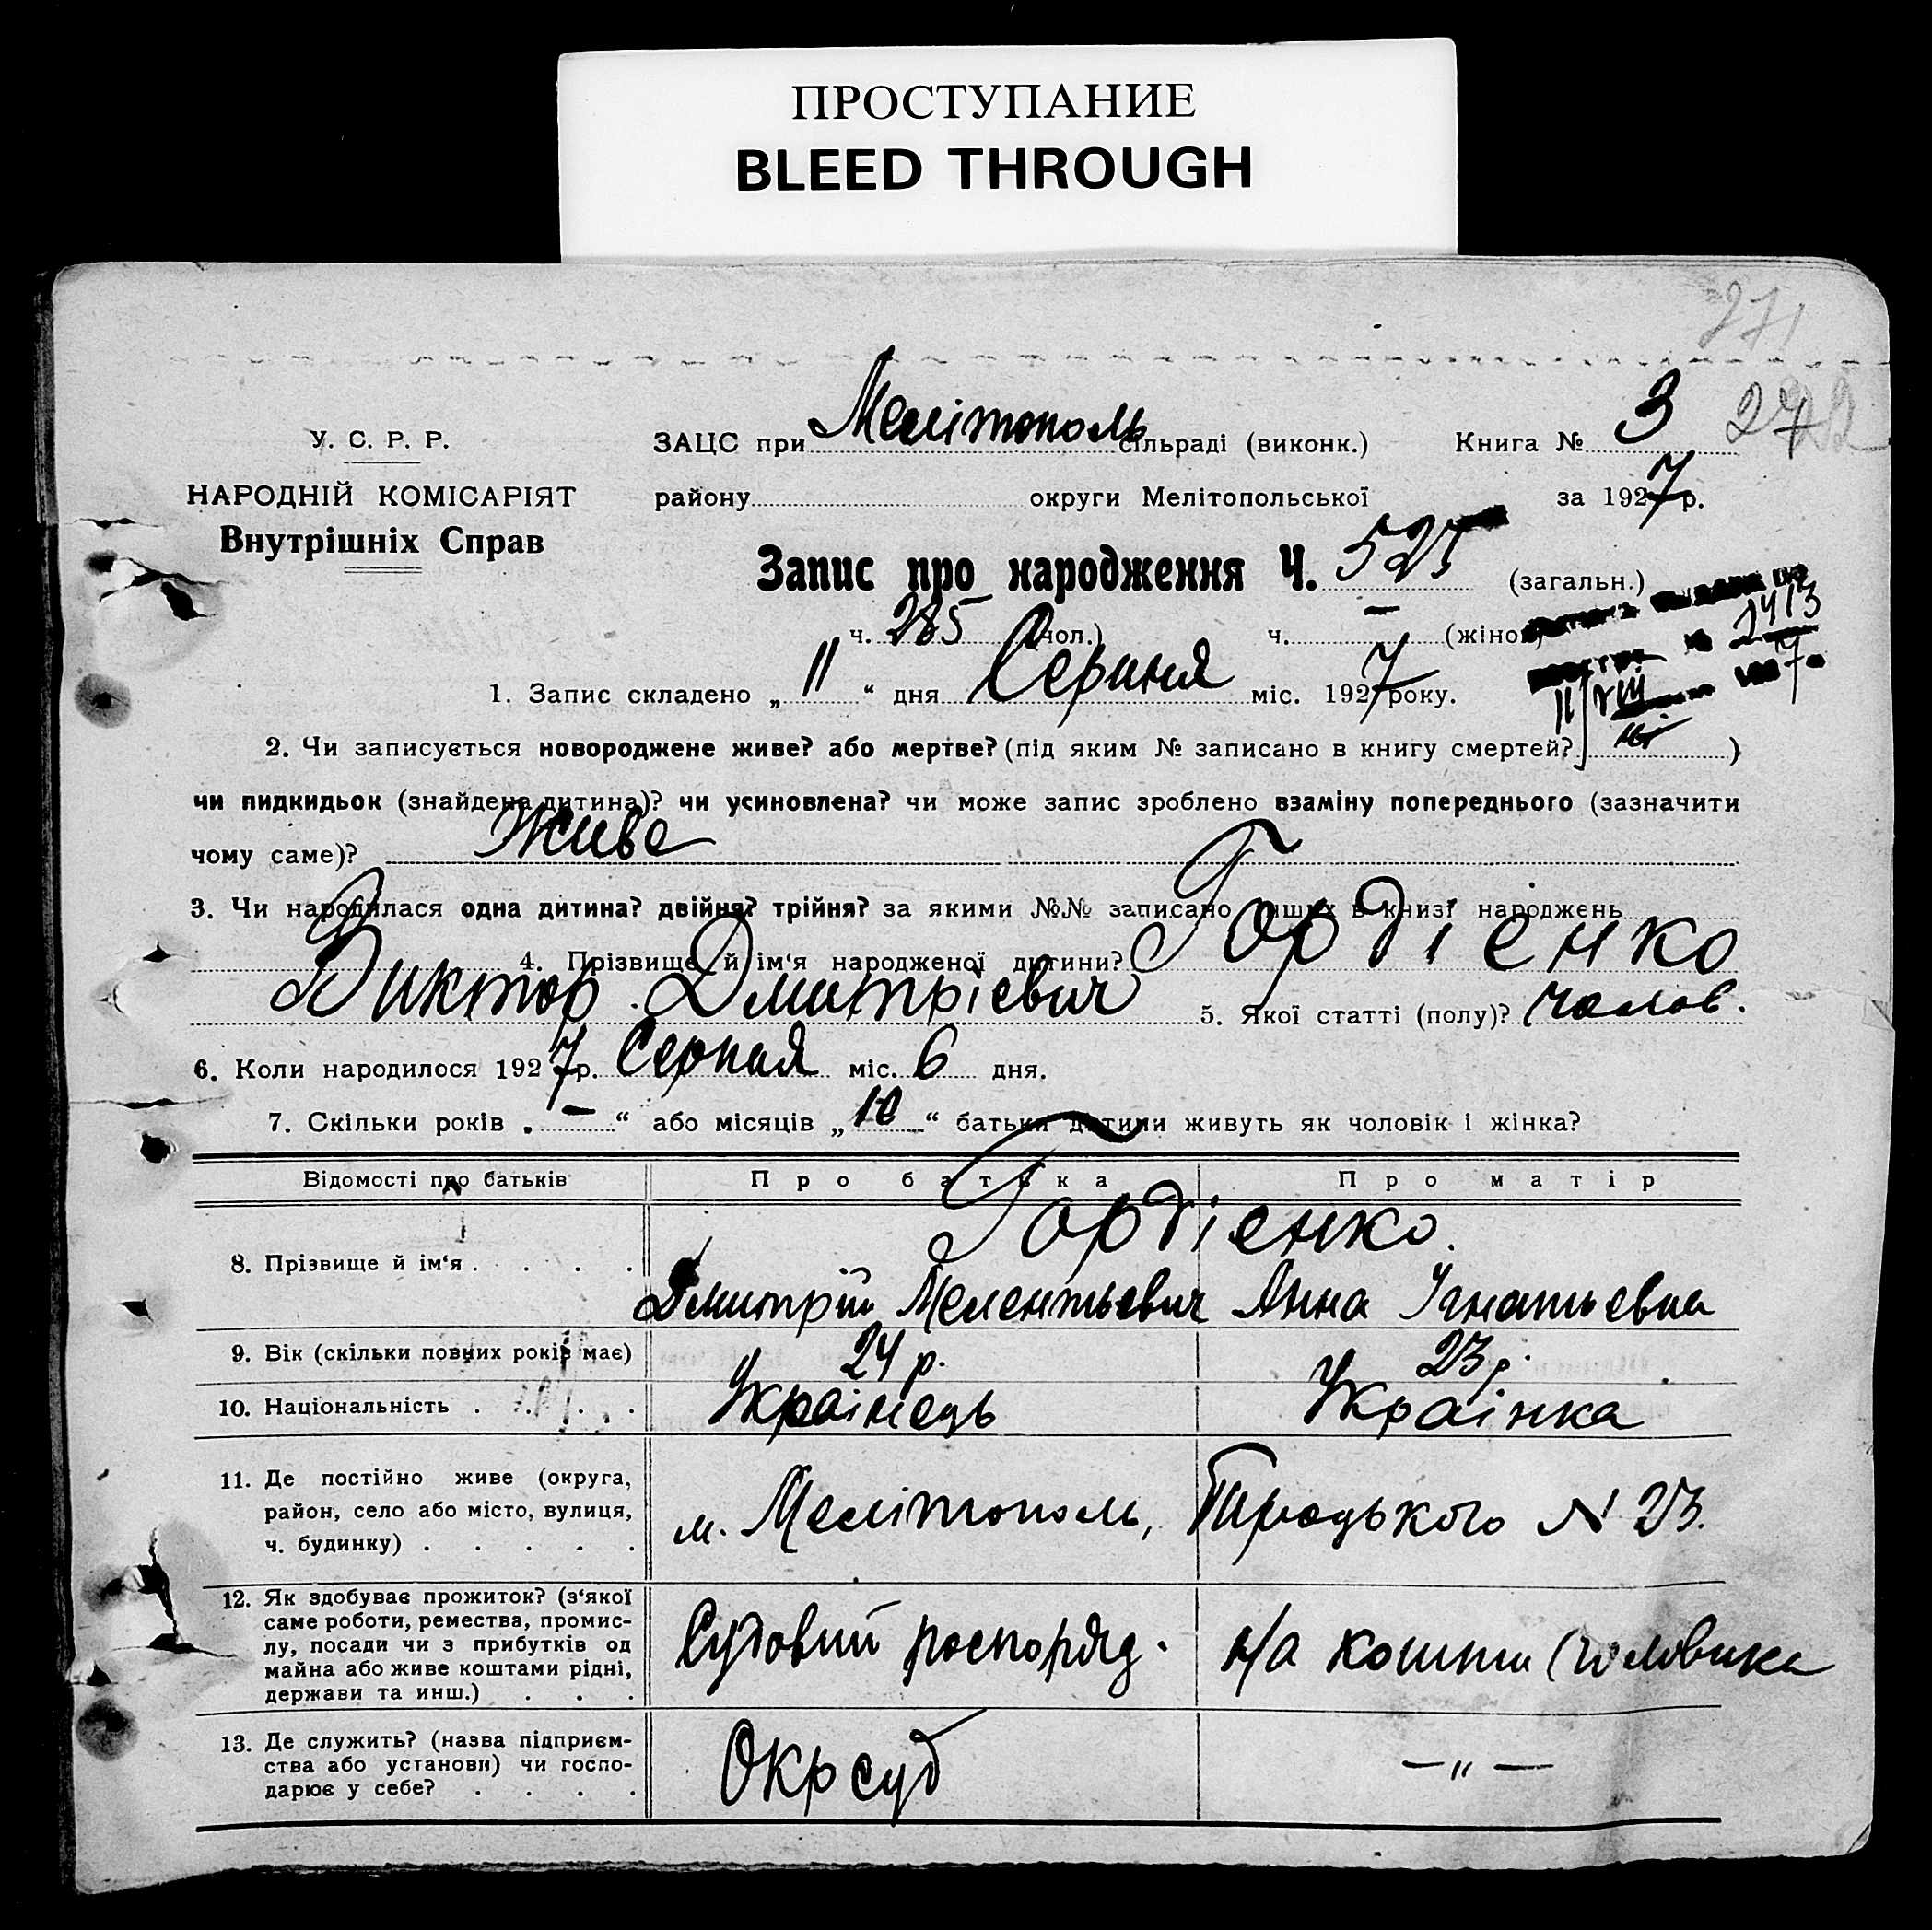 ПРОСТУПАНИЕ
BLEED THROUGH
271
272
У. С. Р. Р.
НАРОДНІЙ КОМІСАРІЯТ
Внутрішніх Справ
ЗАЦС при Мелітополь сільраді (виконк.) Книга № 3
району округи Мелітопольської за 1927 р.
Запис про народження Ч. 525 (загальн.)
ч. 285 (чол.) ч. — (жіноч.)
2413
1. Запис складено „11“ дня Серпня міс. 1927 року.
11/VIII 7
2. Чи записується новороджене живе? або мертве? (під яким № записано в книгу смертей? )
чи пидкидьок (знайдена дитина)? чи усиновлена? чи може запис зроблено взаміну попереднього (зазначити
чому саме)? Живе
3. Чи народилася одна дитина? двійня? трійня? за якими №№ записано инших в книзі народжень
4. Прізвище й ім‘я народженої дитини? Гордіенко
Виктор Дмитріевич 5. Якої статті (полу)? Чолов.
6. Коли народилося 1927 р. Серпня міс. 6 дня.
7. Скільки років „—“ або місяців „10“ батьки дитини живуть як чоловік і жінка?
Відомості про батьків Про батька Про матір
8. Прізвище й ім‘я . . . . . Гордіенко.
Дмитрій Мелентьевич Анна Ігнатьевна
9. Вік (скільки повних років має) 24 р. 23 р.
10. Національність . . . . Украінець Украінка
11. Де постійно живе (округа,
район, село або місто, вулиця,
ч. будинку) . . . . . м. Мелітополь, Троцького N 23.
12. Як здобуває прожиток? (з‘якої
саме роботи, ремества, промис-
лу, посади чи з прибутків од
майна або живе коштами рідні,
держави та инш.) . . . Судовий роспоряд. н/а кошти чоловика
13. Де служить? (назва підприєм-
ства або установи) чи госпо-
дарює у себе? . . . . Окрсуд — „ —